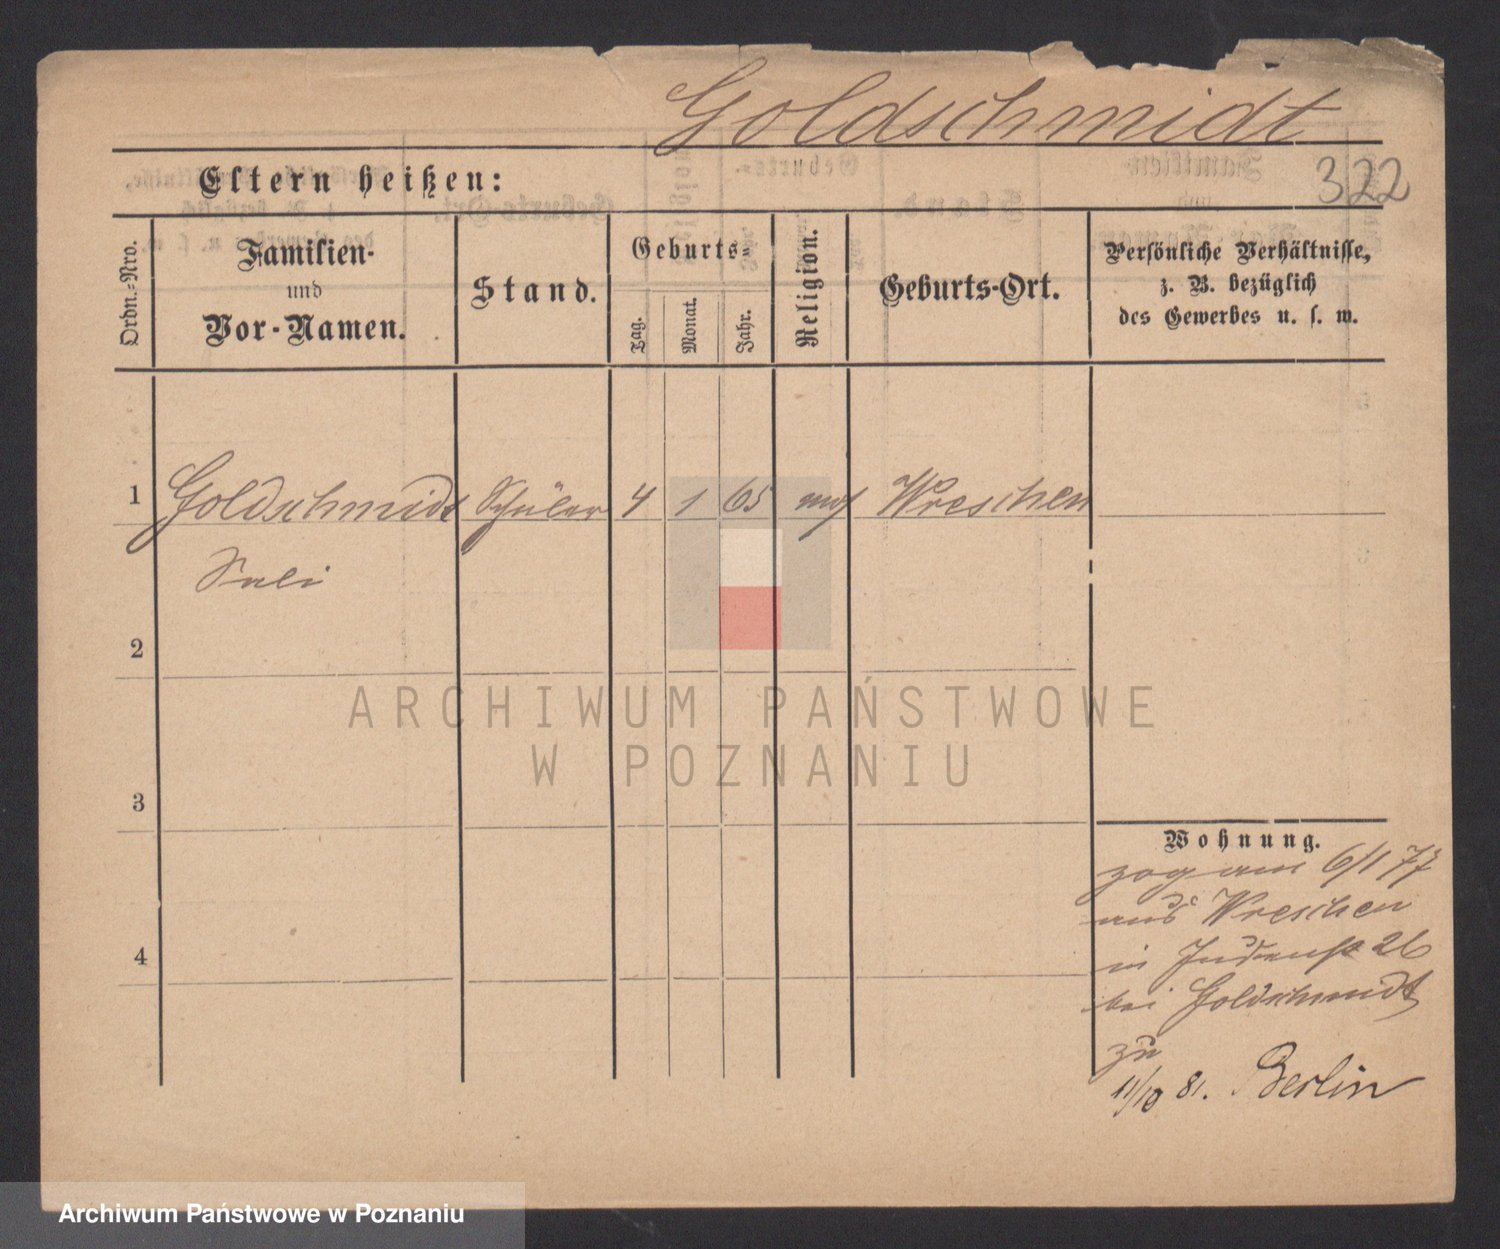 Goldschmidt
322
Eltern heißen:
Ordn.-Nro.
Familien-
und
Vor-Namen.
Stand.
Geburts-
Tag.
Monat.
Jahr.
Religion.
Geburts-Ort.
Persönliche Verhältnisse,
z. B. bezüglich
des Gewerbes u. s. w.
1 Goldschmidt Schüler 4 1 65 mos Wreschen
Sali
2
3
4
Wohnung.
zog am 6/1 77
aus Wreschen
in Judenst 26
bei Goldschmidt
zu
11/10 81. Berlin
ARCHIWUM PAŃSTWOWE
W POZNANIU
Archiwum Państwowe w Poznaniu